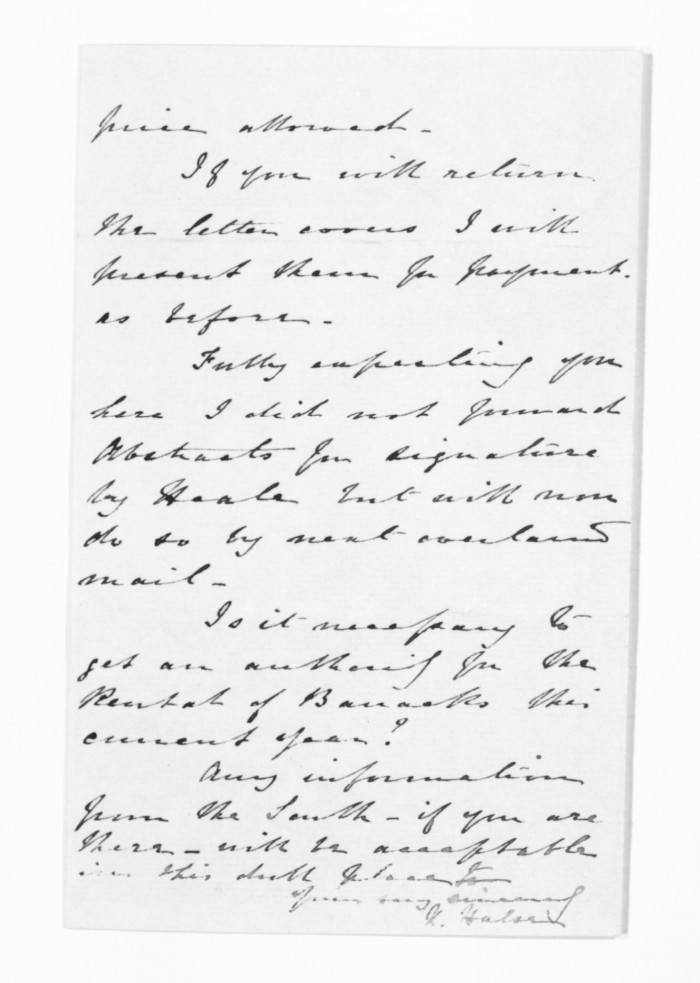 price allowed -
If you will return
the letter covers I will
present them for payment.
as before -
Fully expecting you
here I did not forward
Abstracts for signature
by Heale but will now
do so by next overland
mail -
Is it necessary to
get an authority for the
Rental of Barracks this
current year?
Any information
from the South - if you are
there - will be acceptable
in this dull place to
Yours very sincerely
H. Halse